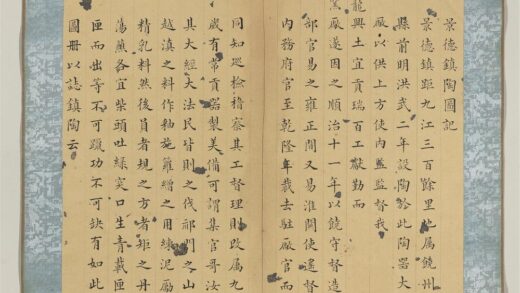 景德鎮陶圖記
景德鎮距九江三百餘里地屬饒州
縣前明洪武二年設陶於此陶器大
廠以供上方使內監督我
龍興土宜貢瑞百工獻勤而
窯廠遂因之順治十一年以饒守督造
部官易之雍正間又易淮關使遙督
內務府官至乾隆年裁去駐廠官而
同知巡檢稽察其工督理則改屬九
歲有常貢器製美備可謂集官哥汝
其大經大法民皆則之伐祁門之山
越滇之料作釉施繪之用練泥
精乳料然後員者規之方者矩之丹
蕩薰各宜柴頭吐綠突口生青載匣
匣而出等不可躐功不可缺有如此
圖冊以誌鎮陶云